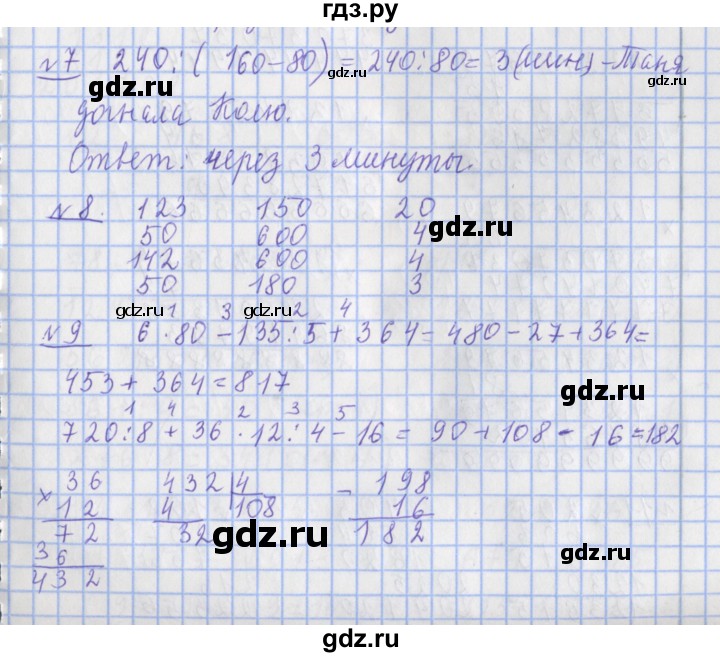 гдз.ру
№7 240:( 160-80) = 240:80= 3(мин) -Таня
gdz.ru
догнала Колю.
gdz.ru
Ответ: через 3 минуты.
№8. 123 150 20
50 600 4
gdz.ru
142 600 4
50 180 3
gdz.ru gdz.ru
1 3 2 4
№9 6·80-135:5+364=480-27+364=
453+364=817
gdz.ru
1 4 2 3 5
720:8+36·12:4-16= 90+108- 16=182
36 432|4 - 198
× 12 4 108 16
72 32 182
gdz.ru
gdz.ru
36
432
gdz.ru